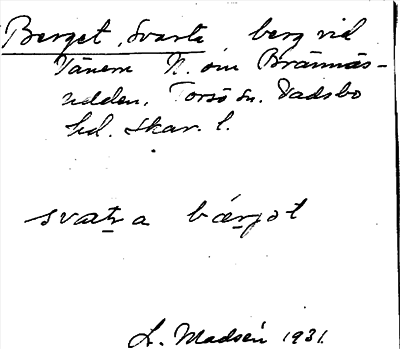 Berget, Svarta berg vid
Vänern N. om Brännäs-
udden. Torsö sn. Vadsbo
hd. Skar. l.
svatra bærjət
L. Madsén 1931.